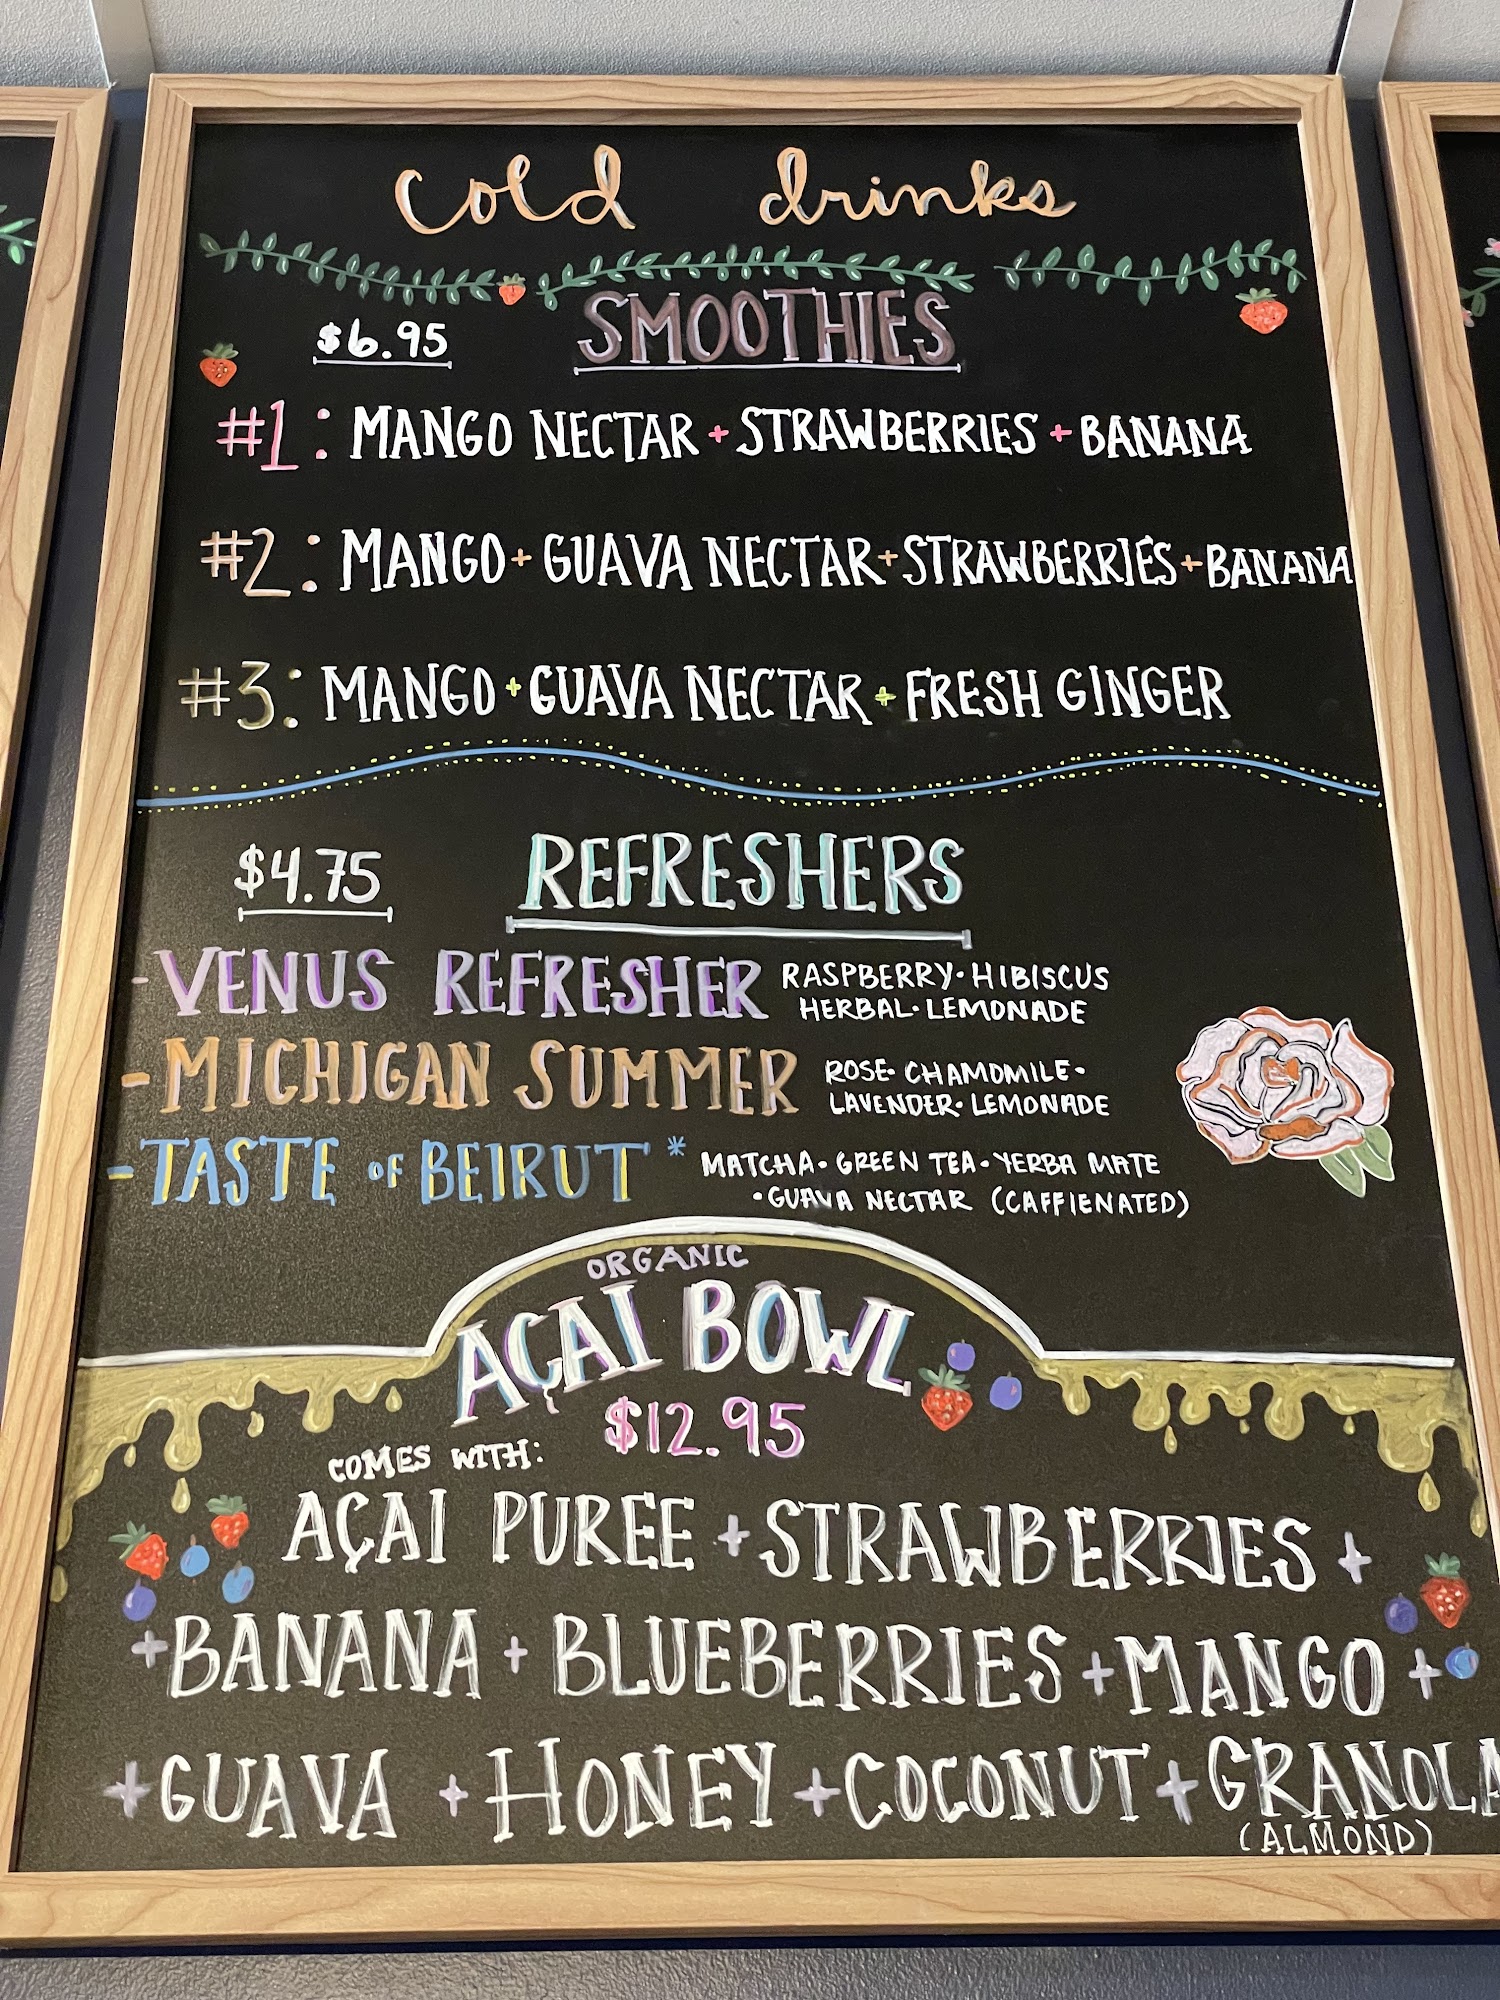 cold drinks
$6.95 SMOOTHIES
#1: MANGO NECTAR + STRAWBERRIES + BANANA
#2: MANGO + GUAVA NECTAR + STRAWBERRIES + BANANA
#3: MANGO + GUAVA NECTAR + FRESH GINGER
$4.75 REFRESHERS
- VENUS REFRESHER RASPBERRY · HIBISCUS
HERBAL · LEMONADE
- MICHIGAN SUMMER ROSE · CHAMOMILE ·
LAVENDER · LEMONADE
- TASTE OF BEIRUT * MATCHA · GREEN TEA · YERBA MATE
· GUAVA NECTAR (CAFFIENATED)
ORGANIC
AÇAI BOWL
$12.95
COMES WITH:
AÇAI PUREE + STRAWBERRIES +
+ BANANA + BLUEBERRIES + MANGO +
+ GUAVA + HONEY + COCONUT + GRANOLA
(ALMOND)